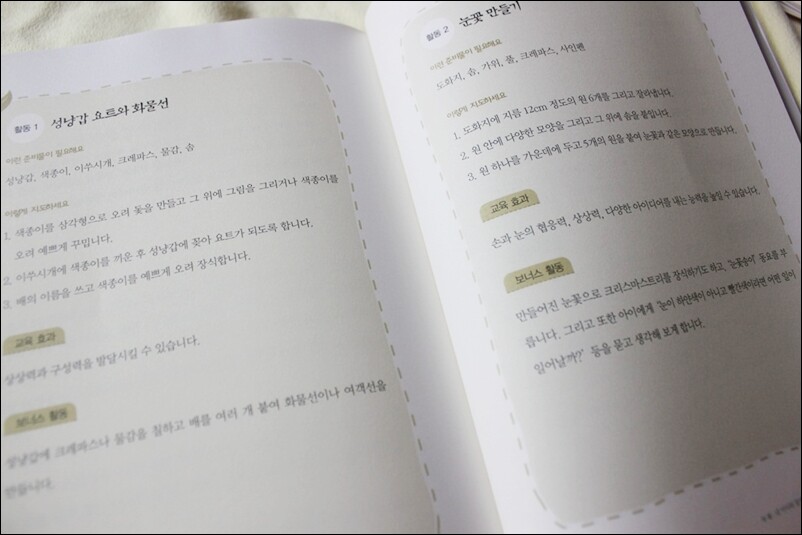 활동 1 성냥갑 요트와 화물선
이런 준비물이 필요해요
성냥갑, 색종이, 이쑤시개, 크레파스, 물감, 솜
이렇게 지도하세요
1. 색종이를 삼각형으로 오려 돛을 만들고 그 위에 그림을 그리거나 색종이를
오려 예쁘게 꾸밉니다.
2. 이쑤시개에 색종이를 끼운 후 성냥갑에 꽂아 요트가 되도록 합니다.
3. 배의 이름을 쓰고 색종이를 예쁘게 오려 장식합니다.
교육 효과
상상력과 구성력을 발달시킬 수 있습니다.
보너스 활동
성냥갑에 크레파스나 물감을 칠하고 배를 여러 개 붙여 화물선이나 여객선을
만듭니다.
활동 2 눈꽃 만들기
이런 준비물이 필요해요
도화지, 솜, 가위, 풀, 크레파스, 사인펜
이렇게 지도하세요
1. 도화지에 지름 12cm 정도의 원 6개를 그리고 잘라냅니다.
2. 원 안에 다양한 모양을 그리고 그 위에 솜을 붙입니다.
3. 원 하나를 가운데에 두고 5개의 원을 붙여 눈꽃과 같은 모양으로 만듭니다.
교육 효과
손과 눈의 협응력, 상상력, 다양한 아이디어를 내는 능력을 높일 수 있습니다.
보너스 활동
만들어진 눈꽃으로 크리스마스트리를 장식하기도 하고, '눈꽃송이' 동요를 부
릅니다. 그리고 또한 아이에게 "눈이 하얀색이 아니고 빨간색이라면 어떤 일이
일어날까?" 등을 묻고 생각해 보게 합니다.